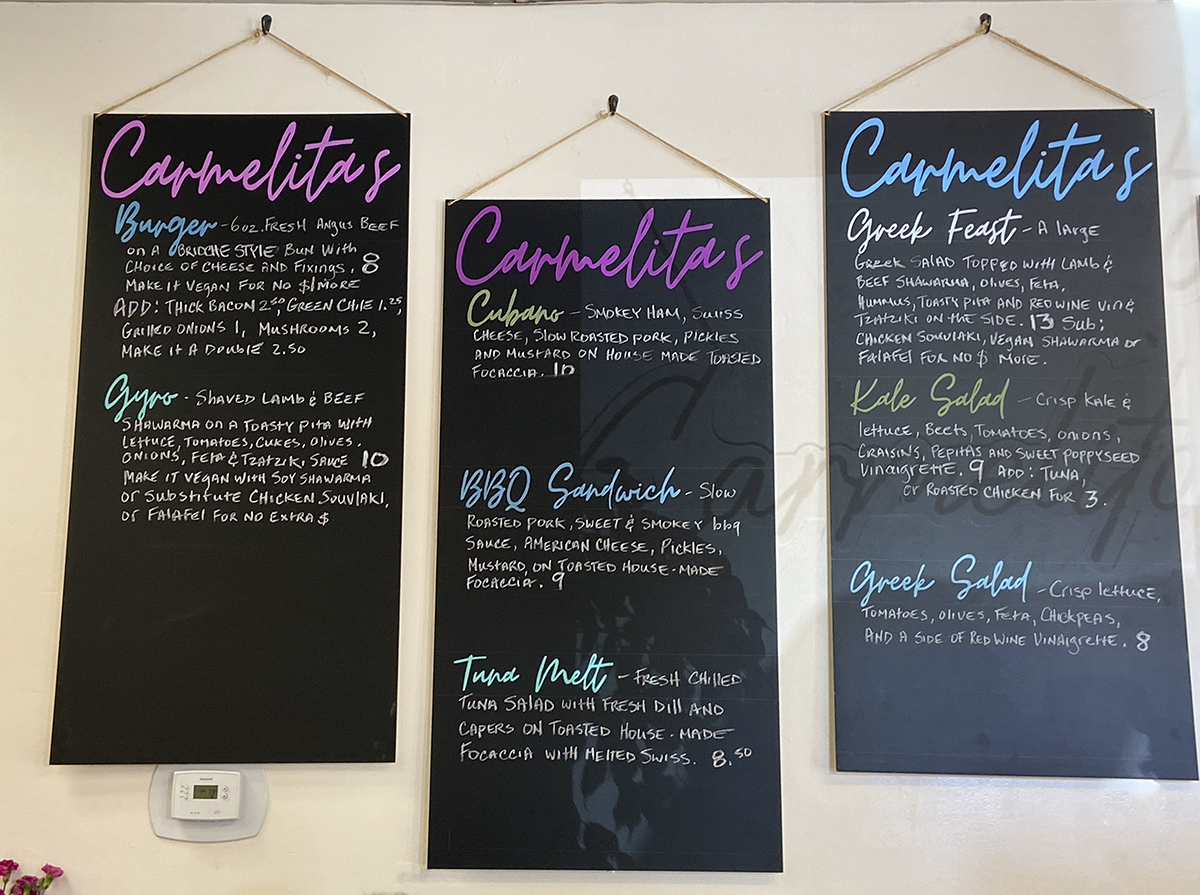 Carmelitas
Burger - 6oz. Fresh Angus Beef
on a BRIOCHE STYLE Bun With
Choice of Cheese and Fixings. 8
Make it Vegan for no $ More
ADD: Thick Bacon 2.50, Green Chile 1.25,
Grilled Onions 1, Mushrooms 2,
Make it a Double 2.50
Gyro - Shaved Lamb & Beef
Shawarma on a Toasty Pita with
Lettuce, Tomatoes, Cukes, Olives,
Onions, Feta & Tzatziki Sauce 10
Make it vegan with Soy Shawarma
or Substitute Chicken Souvlaki,
or Falafel for no Extra $
Carmelitas
Cubano - Smokey Ham, Swiss
Cheese, Slow Roasted Pork, Pickles
and Mustard on House Made Toasted
Focaccia. 10
BBQ Sandwich - Slow
Roasted Pork, Sweet & Smokey bbq
Sauce, American Cheese, Pickles,
Mustard, on Toasted House-Made
Focaccia. 9
Tuna Melt - Fresh Chilled
Tuna Salad with Fresh Dill and
Capers on Toasted House-Made
Focaccia with Melted Swiss. 8.50
Carmelitas
Greek Feast - A large
Greek Salad Topped with Lamb &
Beef Shawarma, Olives, Feta,
Hummus, Toasty Pita and Red Wine Vin &
Tzatziki on the Side. 13 Sub:
Chicken Souvlaki, Vegan Shawarma or
Falafel for no $ More.
Kale Salad - Crisp Kale &
lettuce, Beets, Tomatoes, Onions,
Craisins, Pepitas and Sweet Poppyseed
Vinaigrette. 9 Add: Tuna,
or Roasted Chicken for 3.
Greek Salad - Crisp lettuce,
Tomatoes, Olives, Feta, Chickpeas,
and a side of Red Wine Vinaigrette. 8